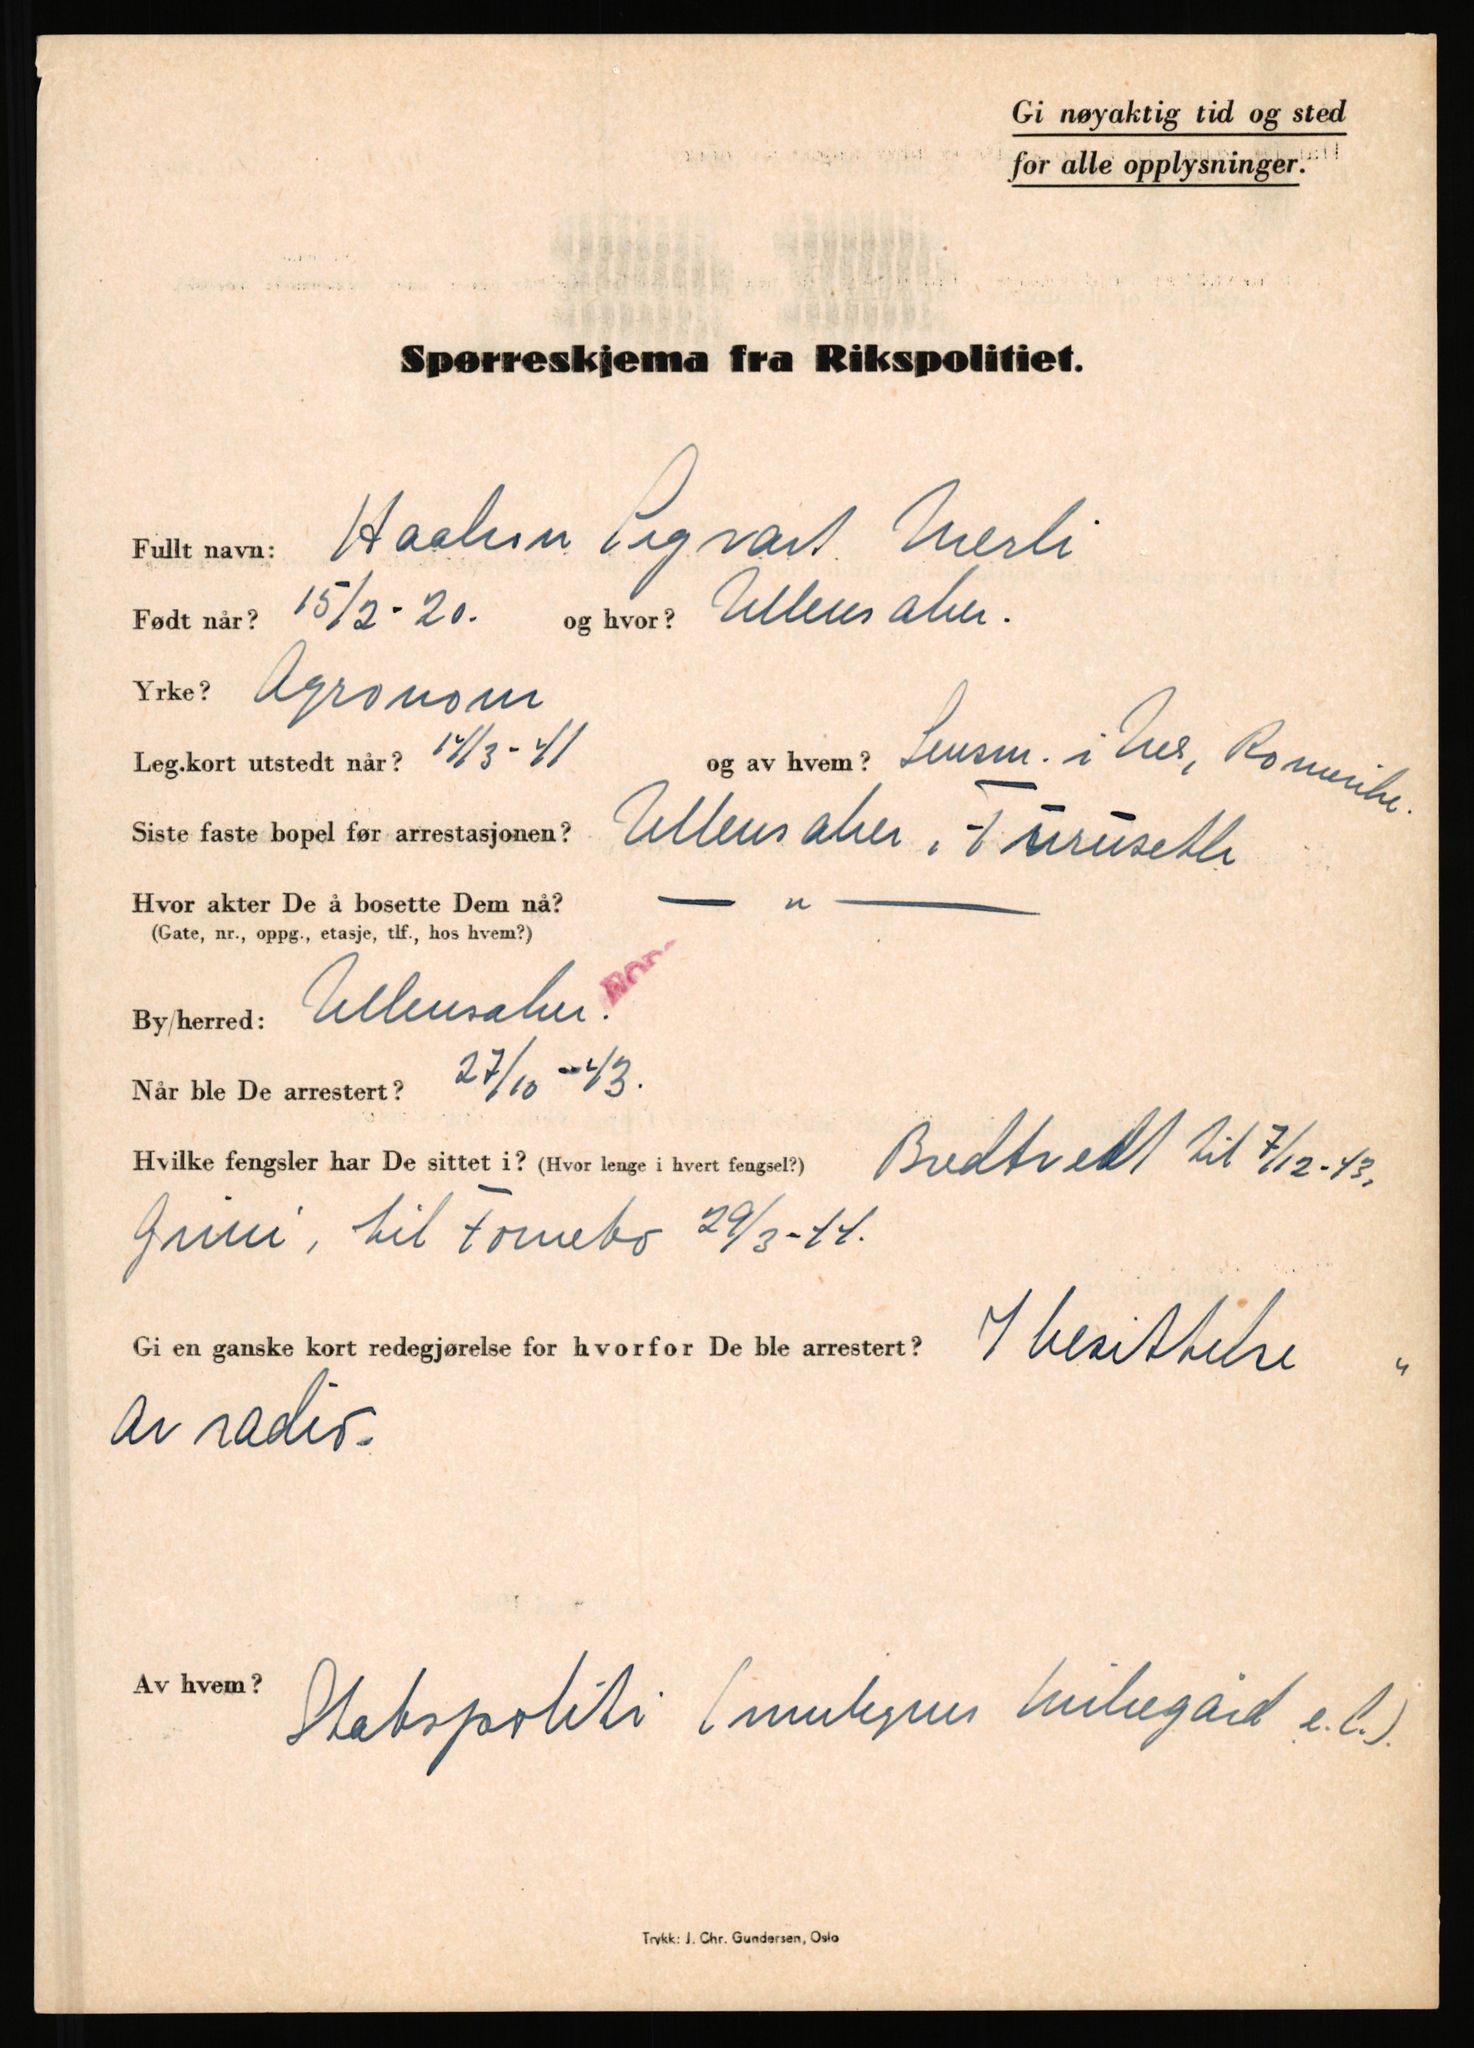 Gi nøyaktig tid og sted
for alle opplysninger.
Spørreskjema fra Rikspolitiet.
Fullt navn: Haakon Sigvart Nerli
Født når? 15/2-20. og hvor? Ullensaker.
Yrke? Agronom
Leg.kort utstedt når? 14/3-41 og av hvem? Lensm. i Nes, Romerike.
Siste faste bopel før arrestasjonen? Ullensaker, Furuseth
Hvor akter De å bosette Dem nå? — " —
(Gate, nr., oppg., etasje, tlf., hos hvem?)
By/herred: Ullensaker.
Når ble De arrestert? 27/10-43.
Hvilke fengsler har De sittet i? (Hvor lenge i hvert fengsel?) Bredtvedt til 7/12-43,
Grini, til Fornebo 29/3-44.
Gi en ganske kort redegjørelse for hvorfor De ble arrestert? I besittelse "
av radio.
Av hvem? Statspoliti ( e.l.).
Trykk: J. Chr. Gundersen, Oslo